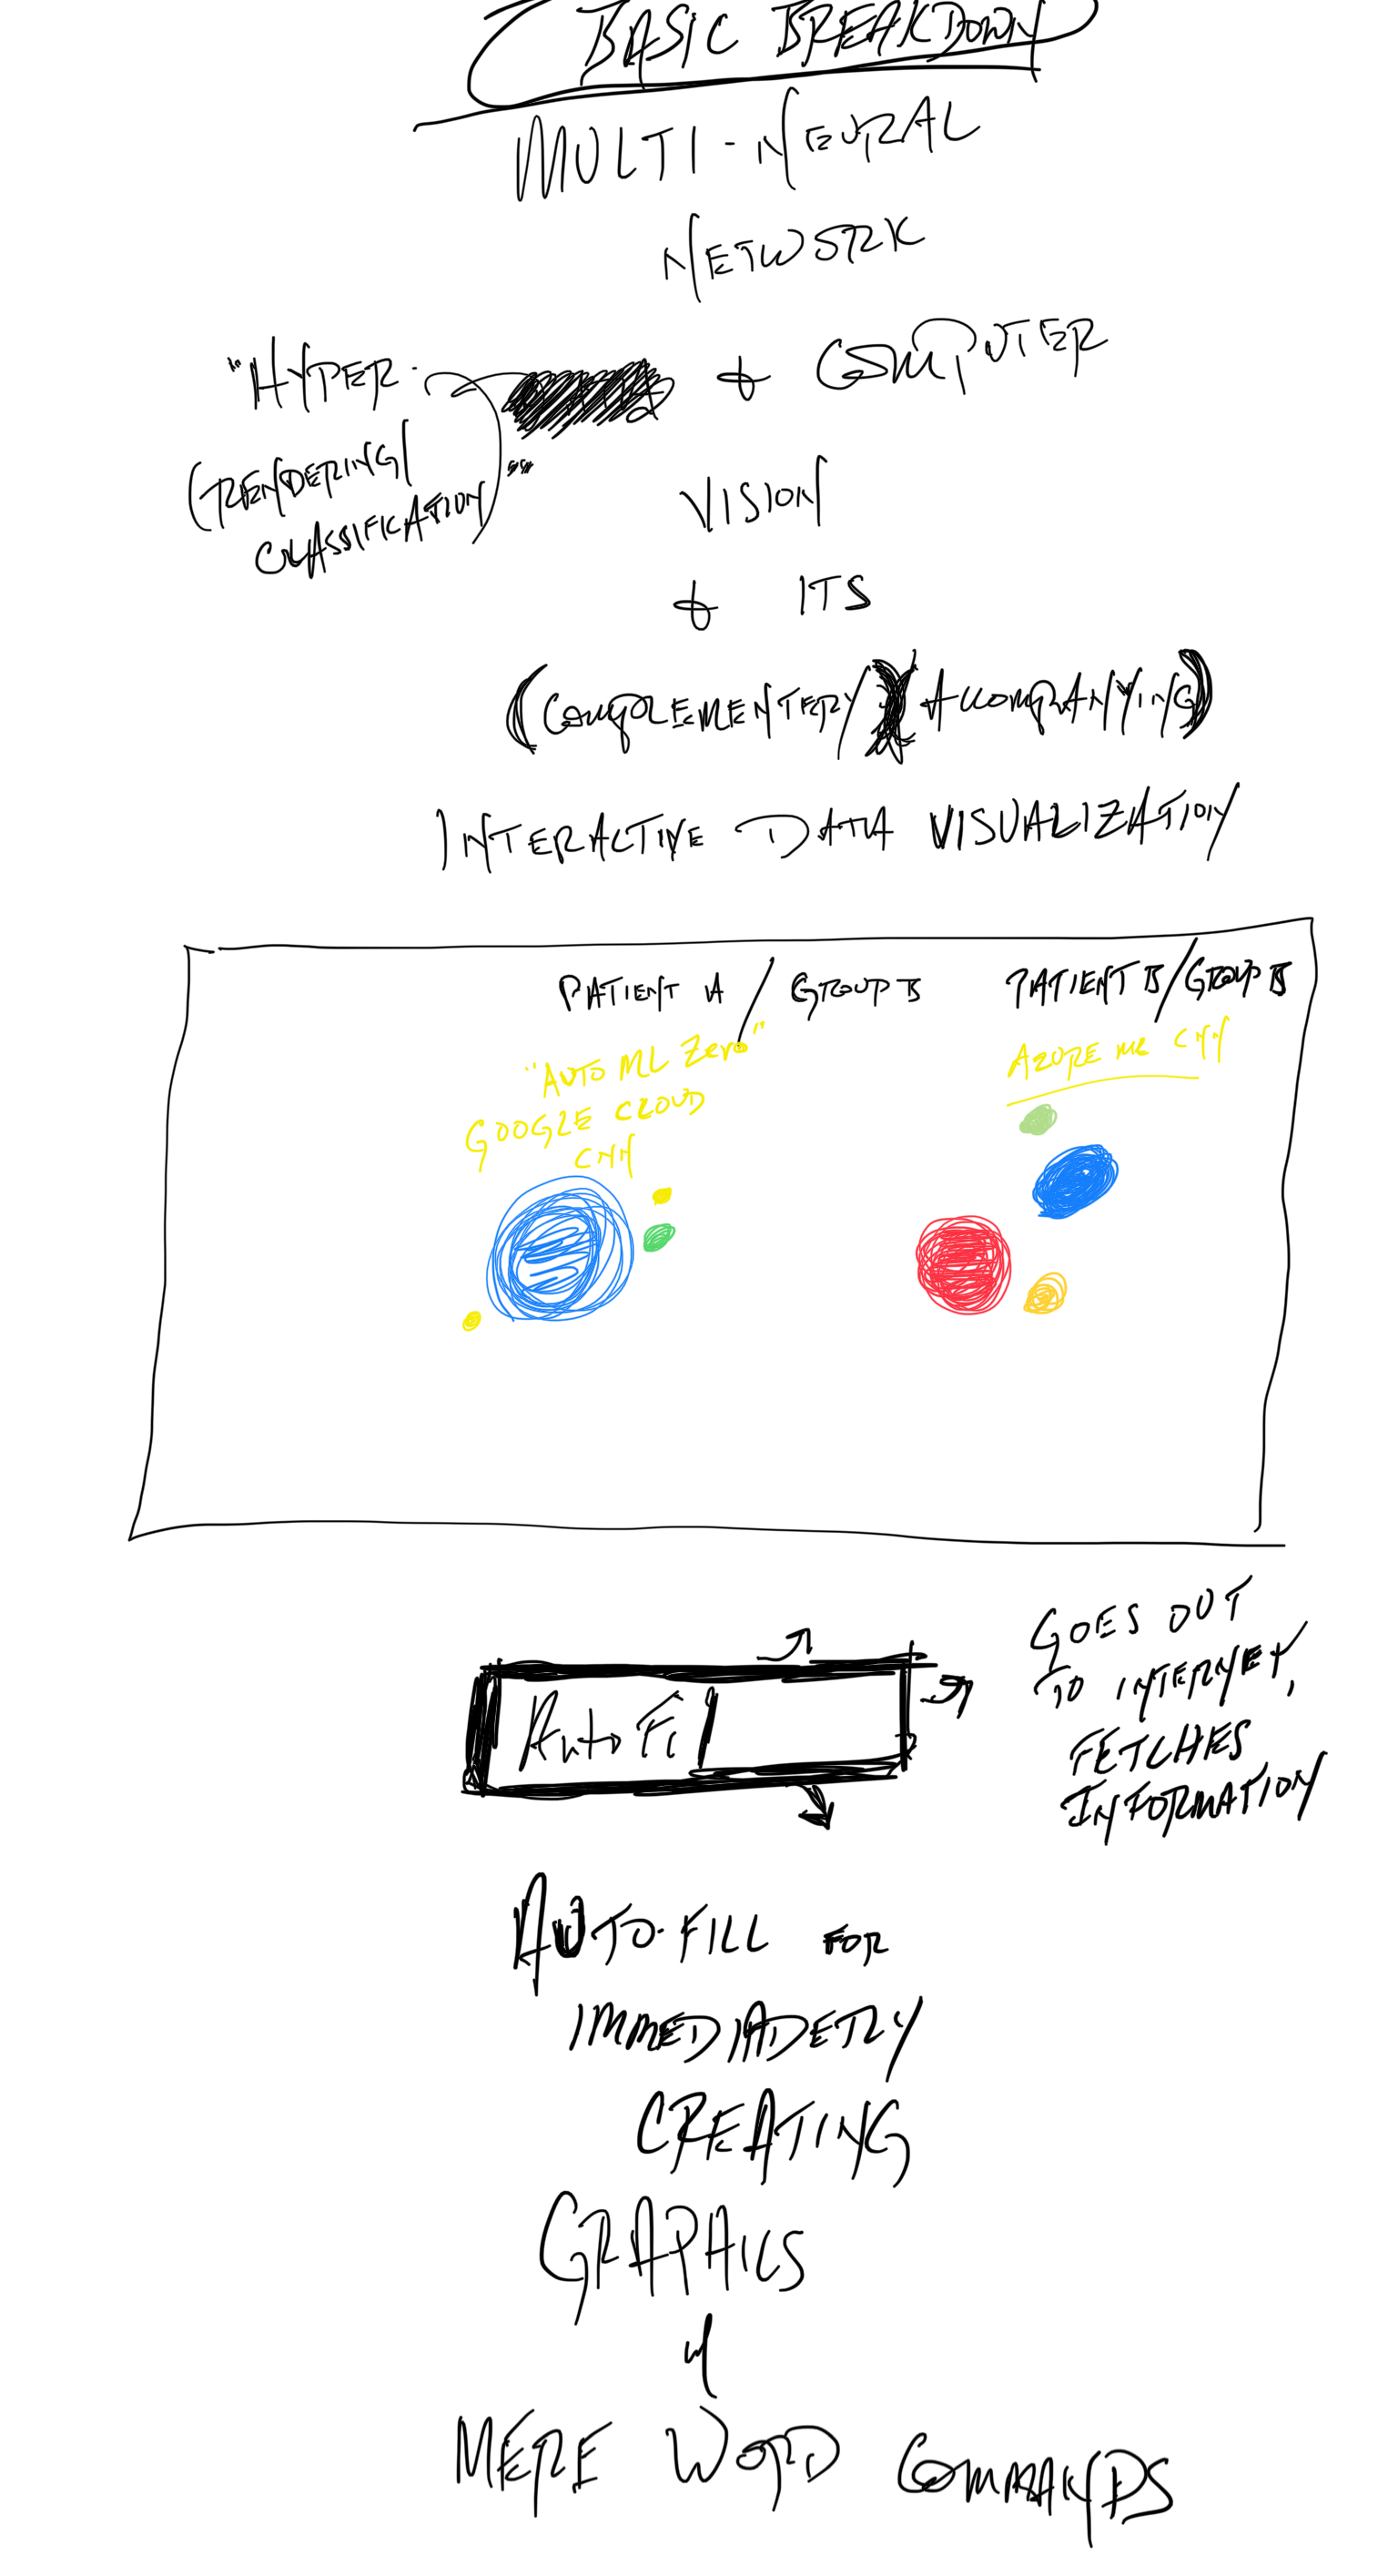 BASIC BREAKDOWN
MULTI-NEURAL
NETWORK
"HYPER-
(RENDERING/
CLASSIFICATION)"
+ COMPUTER
VISION
+ ITS
(COMPLEMENTERY/ACCOMPANYING)
INTERACTIVE DATA VISUALIZATION
PATIENT A / GROUP B
PATIENT B/GROUP B
"AUTO ML Zero"
GOOGLE CLOUD
CNN
AZURE ML CNN
Auto Fi
GOES OUT
TO INTERNET,
FETCHES
INFORMATION
AUTO-FILL FOR
IMMEDIADETLY
CREATING
GRAPHICS
W/
MERE WORD COMMANDS